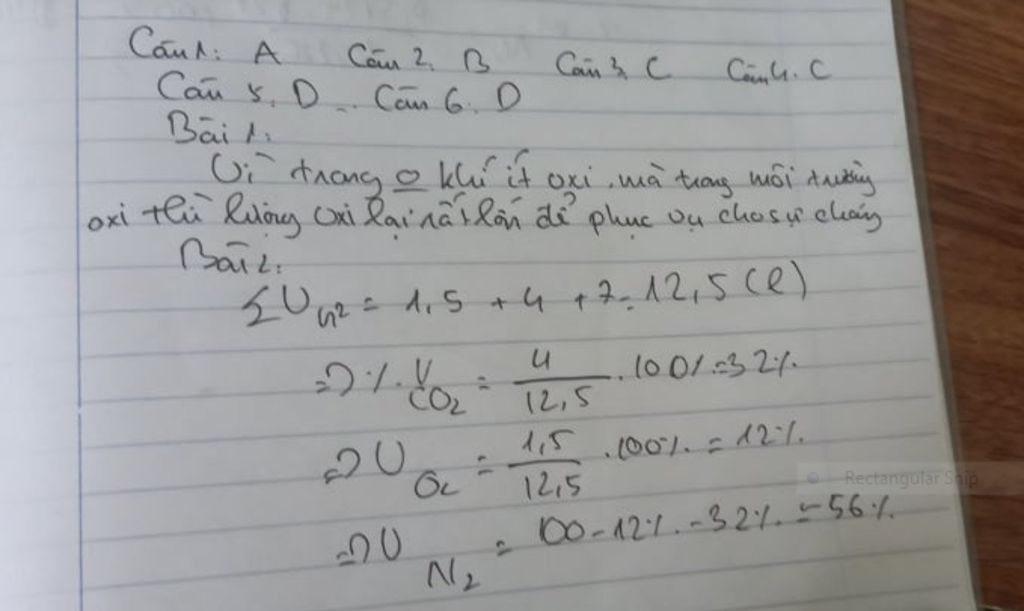 Câu 1: A Câu 2. B Câu 3. C Câu 4. C
Câu 5. D Câu 6. D
Bài 1:
Vì trong o khí ít oxi. mà trong môi trường
oxi thì lượng oxi lại rất lớn để phục vụ cho sự cháy
Bài 2:
∑V = 1,5 + 4 + 7 = 12,5 (l)
=> %V CO₂ = 4/12,5 . 100% = 32%
=> V O₂ = 1,5/12,5 . 100% = 12%
Rectangular Snip
=> V N₂ = 100 - 12% - 32% = 56%